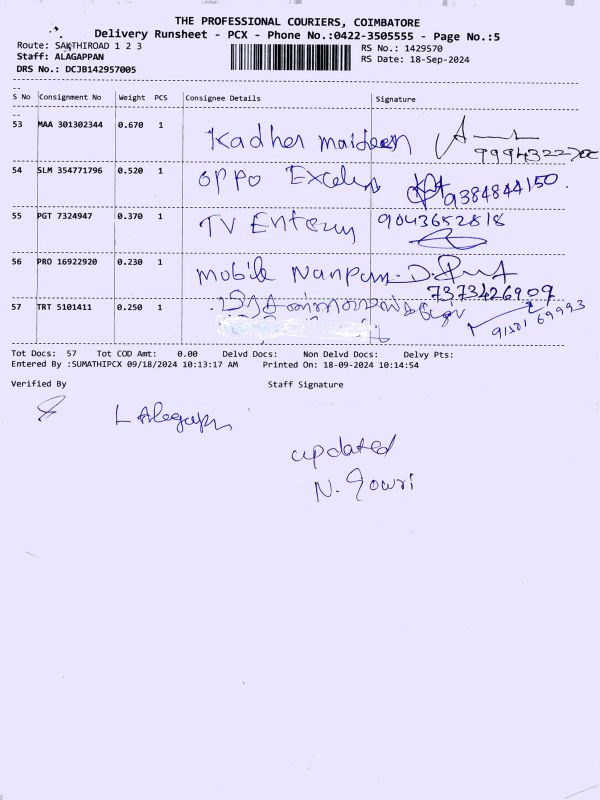 THE PROFESSIONAL COURIERS, COIMBATORE
Delivery Runsheet - PCX - Phone No.:0422-3505555 - Page No.:5
Route: SAKTHIROAD 1 2 3
RS No.: 1429570
Staff: ALAGAPPAN
RS Date: 18-Sep-2024
DRS No.: DCJB142957005
S No Consignment No Weight PCS Consignee Details Signature
53 MAA 301302344 0.670 1 Kadher maideen
54 SLM 354771796 0.520 1 Oppo 9384844150.
55 PGT 7324947 0.370 1 TV 9043652818
56 PRO 16922920 0.230 1 mobile
7373426909
57 TRT 5101411 0.250 1
Tot Docs: 57 Tot COD Amt: 0.00 Delvd Docs: Non Delvd Docs: Delvy Pts:
Entered By :SUMATHIPCX 09/18/2024 10:13:17 AM Printed On: 18-09-2024 10:14:54
Verified By Staff Signature
updated
N. Gowri